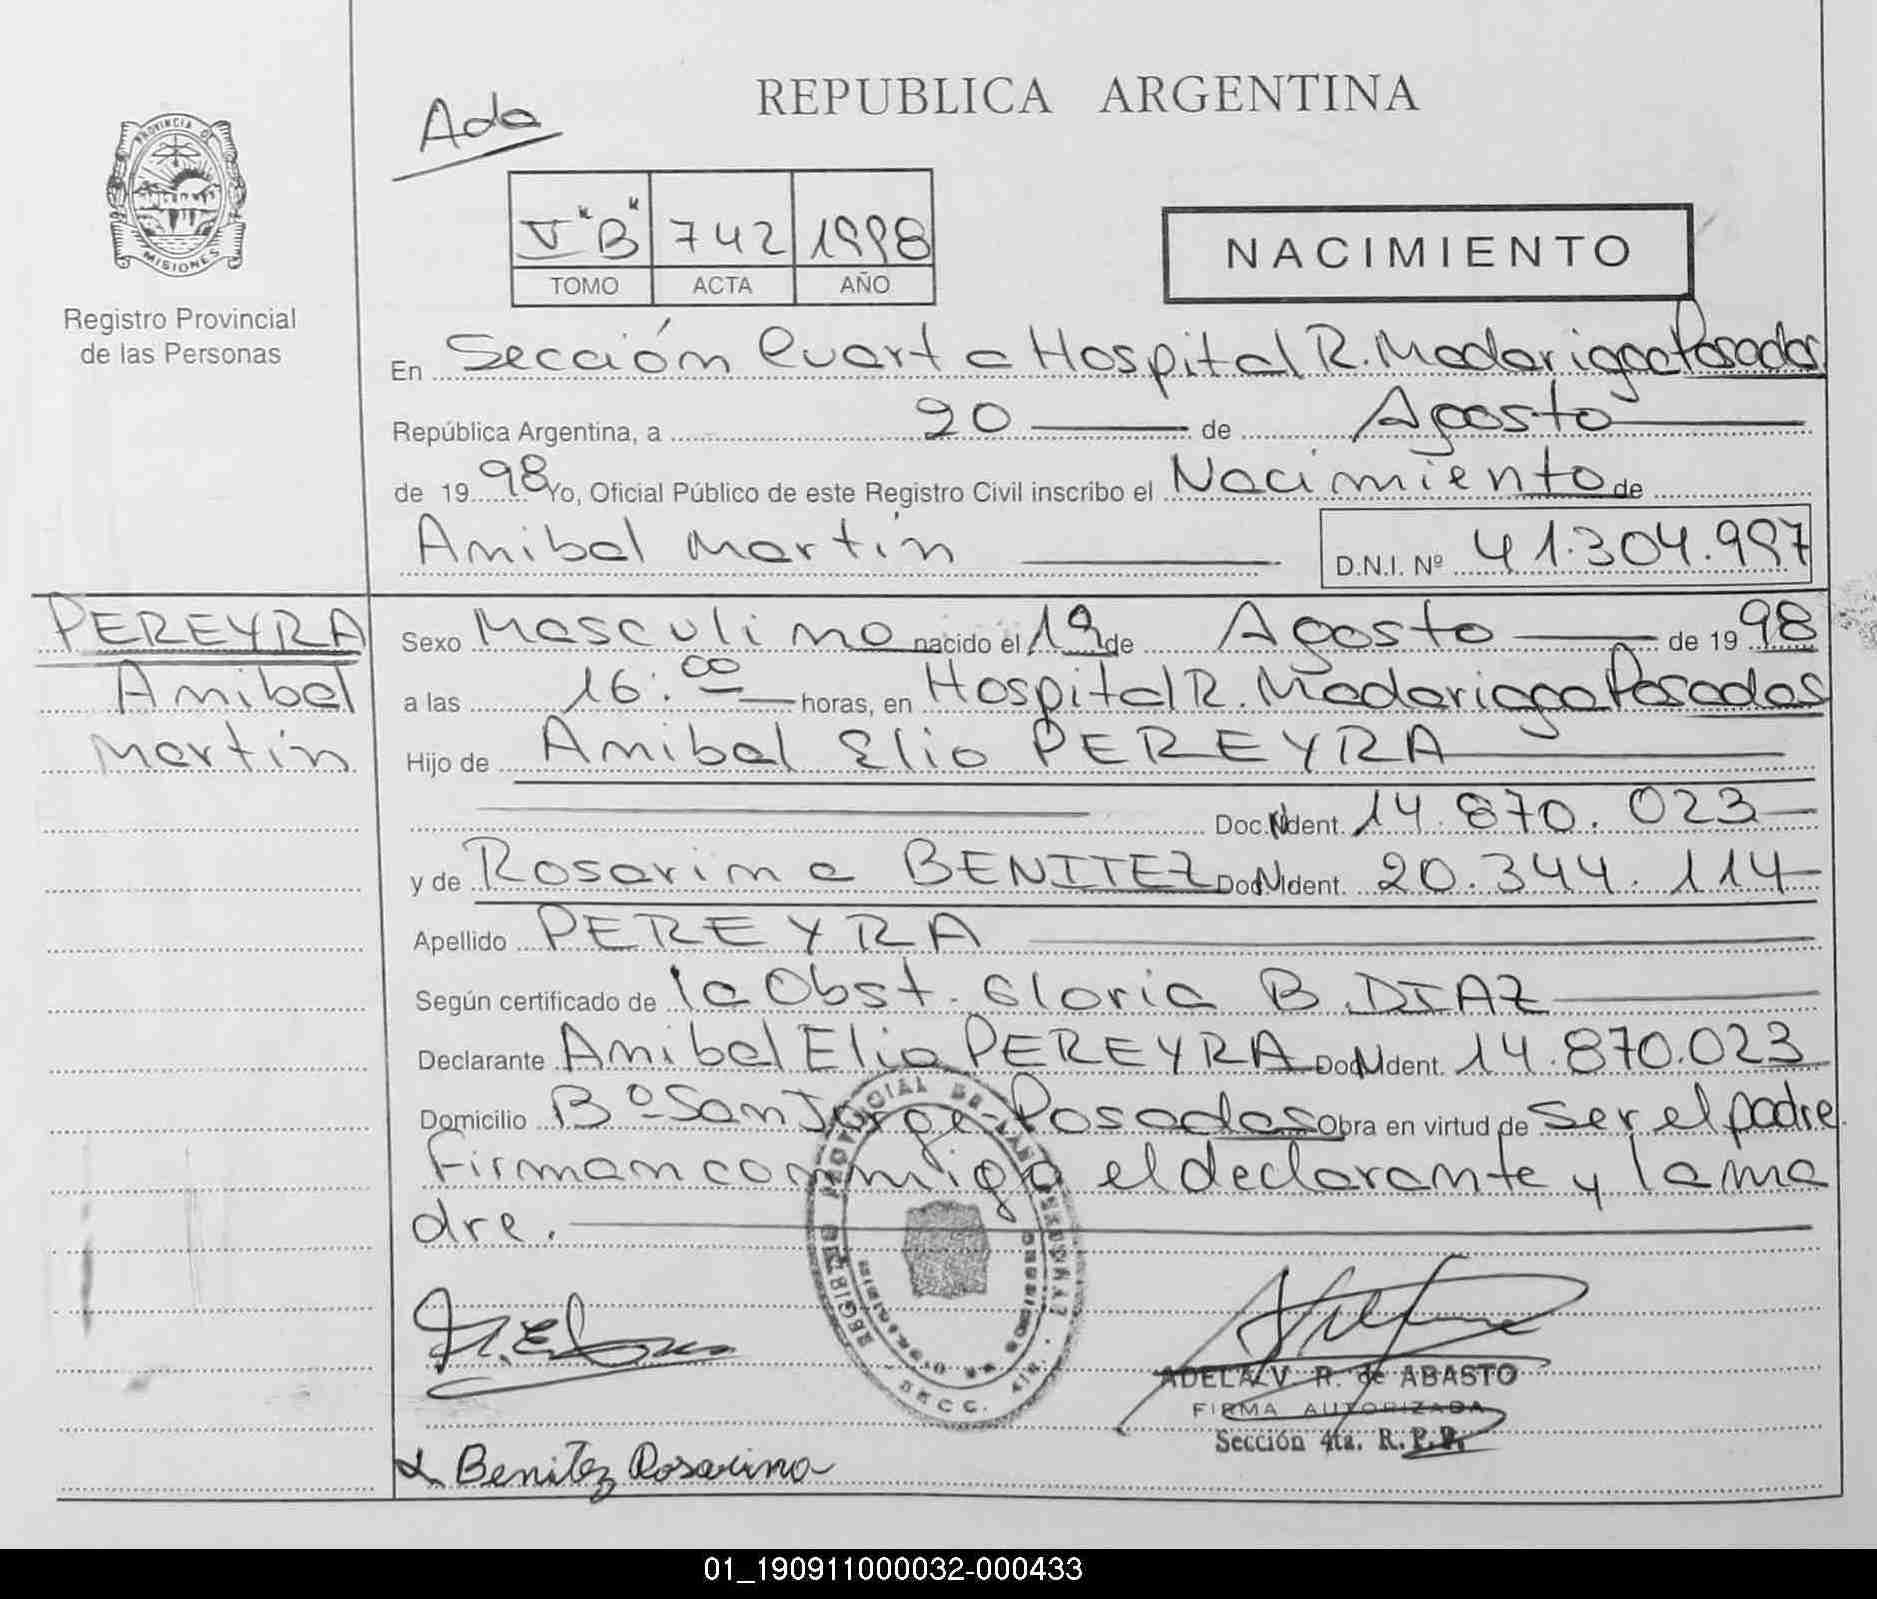 REPUBLICA ARGENTINA
Ada
PROVINCIA DE
MISIONES
Registro Provincial
de las Personas
V "B" 742 1998
TOMO ACTA AÑO
NACIMIENTO
En Sección Cuarta Hospital R. Madariaga Posadas
República Argentina, a 20 de Agosto
de 1998 Yo, Oficial Público de este Registro Civil inscribo el Nacimiento de
Anibal Martín D.N.I. Nº 41.304.997
PEREYRA
Anibal
Martín
Sexo Masculino nacido el 19 de Agosto de 1998
a las 16:00 horas, en Hospital R. Madariaga Posadas
Hijo de Anibal Elio PEREYRA
Doc. N Ident. 14.870.023
y de Rosarina BENITEZ Doc N Ident. 20.344.114
Apellido PEREYRA
Según certificado de la Obst. Gloria B. DIAZ
Declarante Anibal Elio PEREYRA Doc N Ident. 14.870.023
Domicilio Bº San Jorge-Posadas Obra en virtud de ser el padre
Firman conmigo el declarante y la ma
dre.
ADELA V. R. de ABASTO
FIRMA AUTORIZADA
Sección 4ta. R. P. P.
Benitez Rosarina
01_190911000032-000433